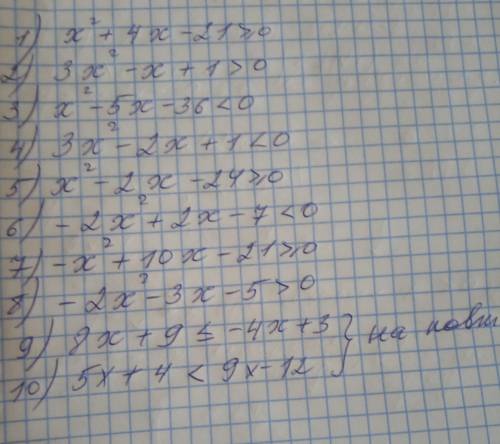 1) x² + 4x - 21 ≥ 0
2) 3x² - x + 1 > 0
3) x² - 5x - 36 < 0
4) 3x² - 2x + 1 < 0
5) x² - 2x - 24 ≥ 0
6) - 2x² + 2x - 7 < 0
7) -x² + 10x - 21 ≥ 0
8) - 2x² - 3x - 5 > 0
9) 8x + 9 ≤ -4x + 3 } на
10) 5x + 4 < 9x - 12